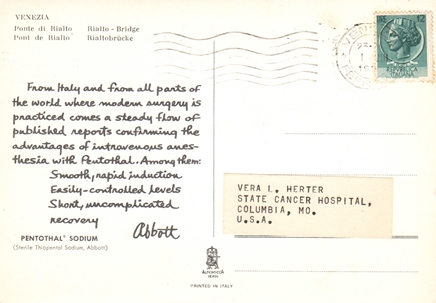 VENEZIA
Ponte di Rialto Rialto - Bridge
Pont de Rialto Rialtobrücke
12
From Italy and from all parts of
the world where modern surgery is
practiced comes a steady flow of
published reports confirming the
advantages of intravenous anes-
thesia with Pentothal. Among them:
Smooth, rapid induction
Easily-controlled levels
Short, uncomplicated
recovery
Abbott
PENTOTHAL® SODIUM
(Sterile Thiopental Sodium, Abbott)
VERA L. HERTER
STATE CANCER HOSPITAL,
COLUMBIA, MO.
U.S.A.
PRINTED IN ITALY